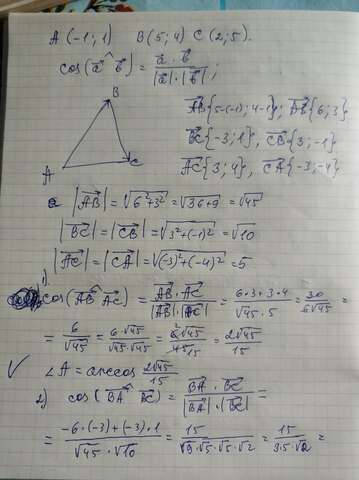 A (-1; 1)   B (5; 4)   C (2; 5).
cos(a⃗ ^ b⃗) = a⃗ · b⃗ / |a⃗|·|b⃗| ;
B
A
C
AB⃗{5-(-1); 4-1}; AB⃗{6; 3}
BC⃗{-3; 1}, CB⃗{3; -1}
AC⃗{3; 4}, CA⃗{-3; -4}
|AB⃗| = √6²+3² = √36+9 = √45
|BC⃗| = |CB⃗| = √3²+(-1)² = √10
|AC⃗| = |CA⃗| = √(-3)²+(-4)² = 5
1) cos(AB⃗ ^ AC⃗) = AB⃗ · AC⃗ / |AB⃗| |AC⃗| = 6·3+3·4 / √45 · 5 = 30 / 5√45 =
= 6/√45 = 6·√45 / √45·√45 = 6√45 / 45 = 2√45 / 15
√ ∠A = arccos 2√45 / 15
2) cos(BA⃗ ^ BC⃗) = BA⃗ · BC⃗ / |BA⃗| · |BC⃗| =
= -6·(-3)+(-3)·1 / √45 · √10 = 15 / √9·√5·√5·√2 = 15 / 3·5·√2 =